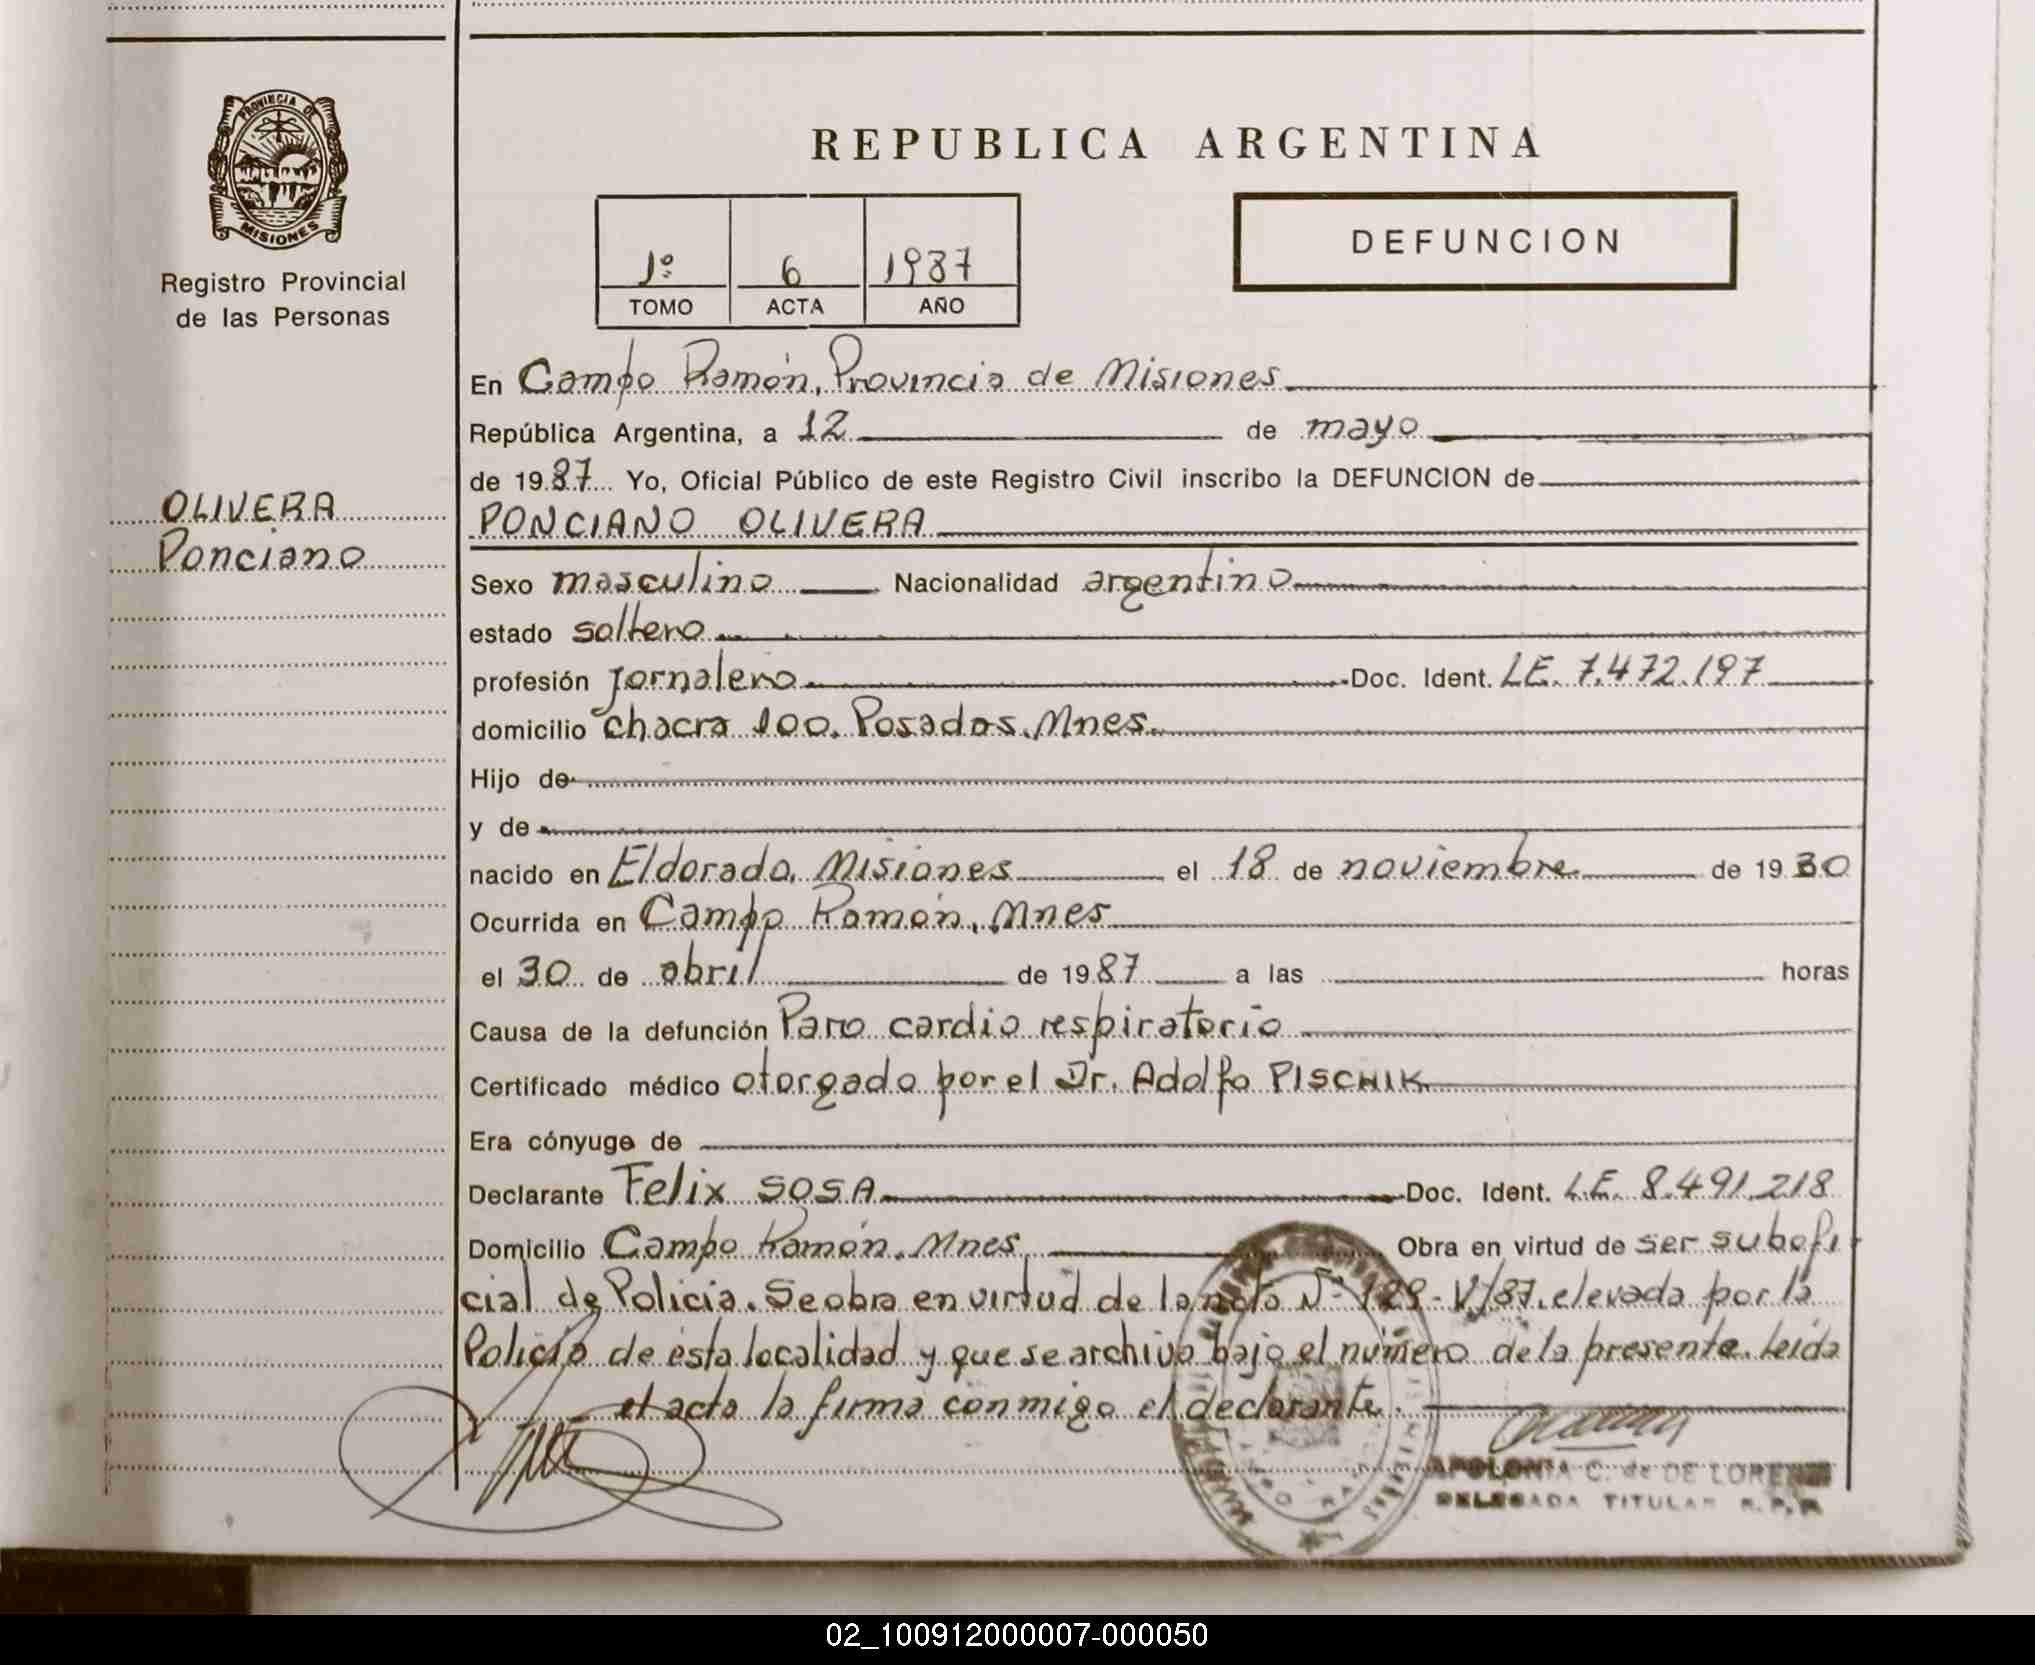 PROVINCIA DE
MISIONES
Registro Provincial
de las Personas
OLIVERA
Ponciano
REPUBLICA ARGENTINA
1º 6 1987
TOMO ACTA AÑO
DEFUNCION
En Campo Ramón, Provincia de Misiones
República Argentina, a 12 de mayo
de 1987 Yo, Oficial Público de este Registro Civil inscribo la DEFUNCION de
PONCIANO OLIVERA
Sexo masculino Nacionalidad argentino
estado soltero
profesión jornalero Doc. Ident. LE. 7.472.197
domicilio chacra 100. Posadas. Mnes.
Hijo de
y de
nacido en Eldorado, Misiones el 18 de noviembre de 1930
Ocurrida en Campo Ramón, Mnes
el 30 de abril de 1987 a las horas
Causa de la defunción Paro cardio respiratorio
Certificado médico otorgado por el Dr. Adolfo PISCHIK
Era cónyuge de
Declarante Felix SOSA Doc. Ident. LE. 8.491.218
Domicilio Campo Ramón. Mnes. Obra en virtud de ser subofi
cial de Policia. Se obra en virtud de la nota Nº 129-V/87. elevada por la
Policia de esta localidad y que se archiva bajo el número de la presente. Leida
el acta la firma conmigo el declarante.
APOLONIA C. de DE LORENZI
DELEGADA TITULAR R.P.P.
02_100912000007-000050